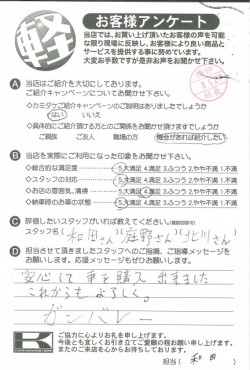 軽
お客様アンケート
当店では、お買い上げ頂いたお客様の声を可能
な限り現場に反映し、お客様により良い商品と
サービスを提供する事に努めています。
大変お手数ですが是非お声をお聞かせ下さい。
A 当店はご紹介を大切にしております。
ご紹介キャンペーンについてお聞かせ下さい。
◇カミタケご紹介キャンペーンのご説明はありましたでしょうか
はい いいえ
◇具体的にご紹介頂ける方とのご関係をお聞かせ頂けますでしょうか
ご親族 ご友人 職場の方 機会があれば紹介したい
B 当店を実際にご利用になった印象をお聞かせ下さい。
◇総合的な満足度 5.大満足 4.満足 3.ふつう 2.やや不満 1.不満
◇スタッフの対応 5.大満足 4.満足 3.ふつう 2.やや不満 1.不満
◇お店の雰囲気、清掃 5.大満足 4.満足 3.ふつう 2.やや不満 1.不満
◇納車時のお車の状態 5.大満足 4.満足 3.ふつう 2.やや不満 1.不満
C 評価したいスタッフがいれば教えてください。(複数回答可)
スタッフ名(和田さん 庭野さん 北川さん)
D 担当させて頂きましたスタッフへのご指摘、ご指導メッセージを
お願いします。応援メッセージもぜひお願いします。
安心して車を購入出来ました
これからもよろしく。
ガンバレー
K
ご協力に心よりお礼を申し上げます。
今後とも宜しくお引き立てご愛顧の程お願い申し上げます。
またのご来店を心からお待ちしております。
担当(和田)